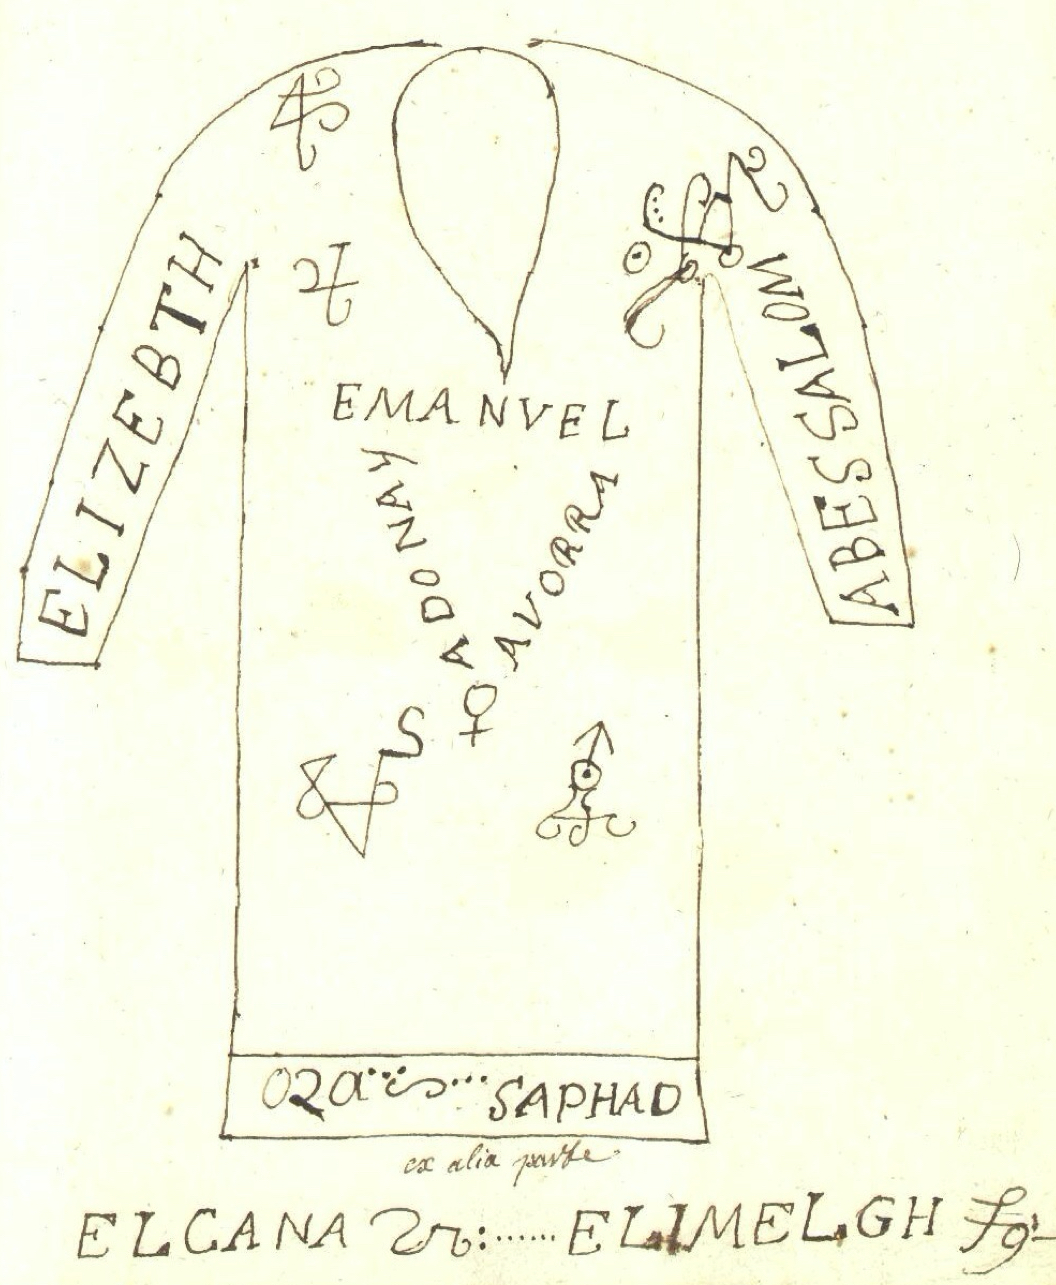 ELIZEBTH
ABESSALOM
EMANVEL
ADONAY
AVORRA
S
SAPHAD
ex alia parte
ELCANA
ELIMELGH